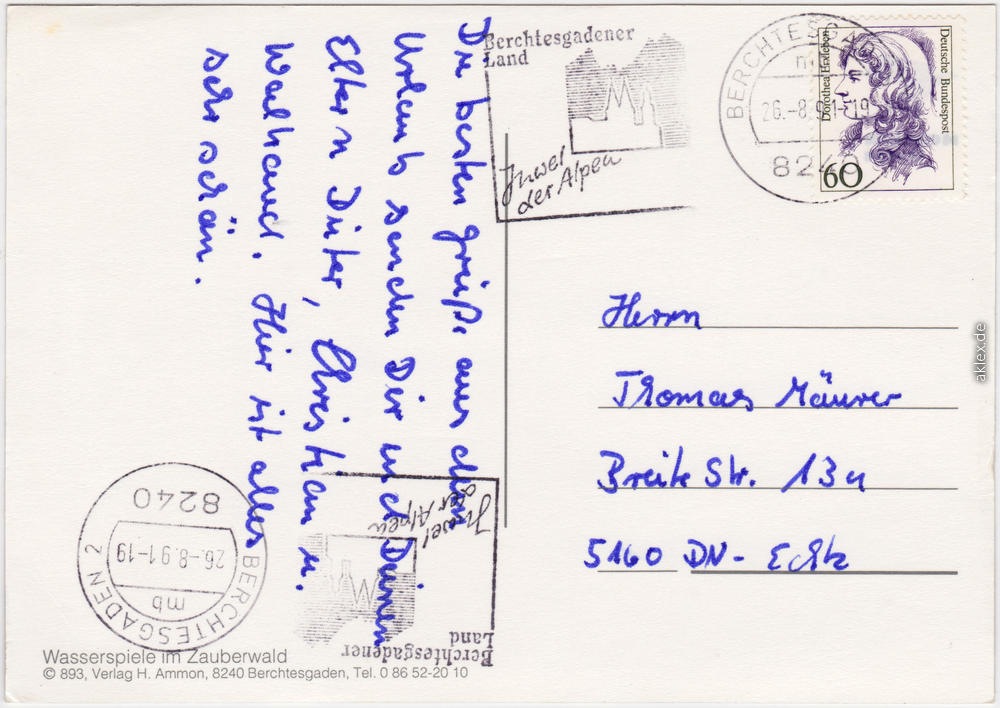 Die besten Grüße aus dem
Urlaub senden Dir und Deinen
Eltern Dieter, Christian u.
Waltraud. Hier ist alles
sehr schön.
Berchtesgadener
Land
Juwel
der Alpen
BERCHTESGADEN
26.-8.91-19
8240
Deutsche Bundespost
Dorothea Erxleben
60
Herrn
Thomas Mäurer
Breite Str. 13a
5160 DN - Echtz
aklex.de
8240
26.-8.91-19
mb
BERCHTESGADEN 2
Juwel
der Alpen
Berchtesgadener
Land
Wasserspiele im Zauberwald
© 893, Verlag H. Ammon, 8240 Berchtesgaden, Tel. 0 86 52-20 10